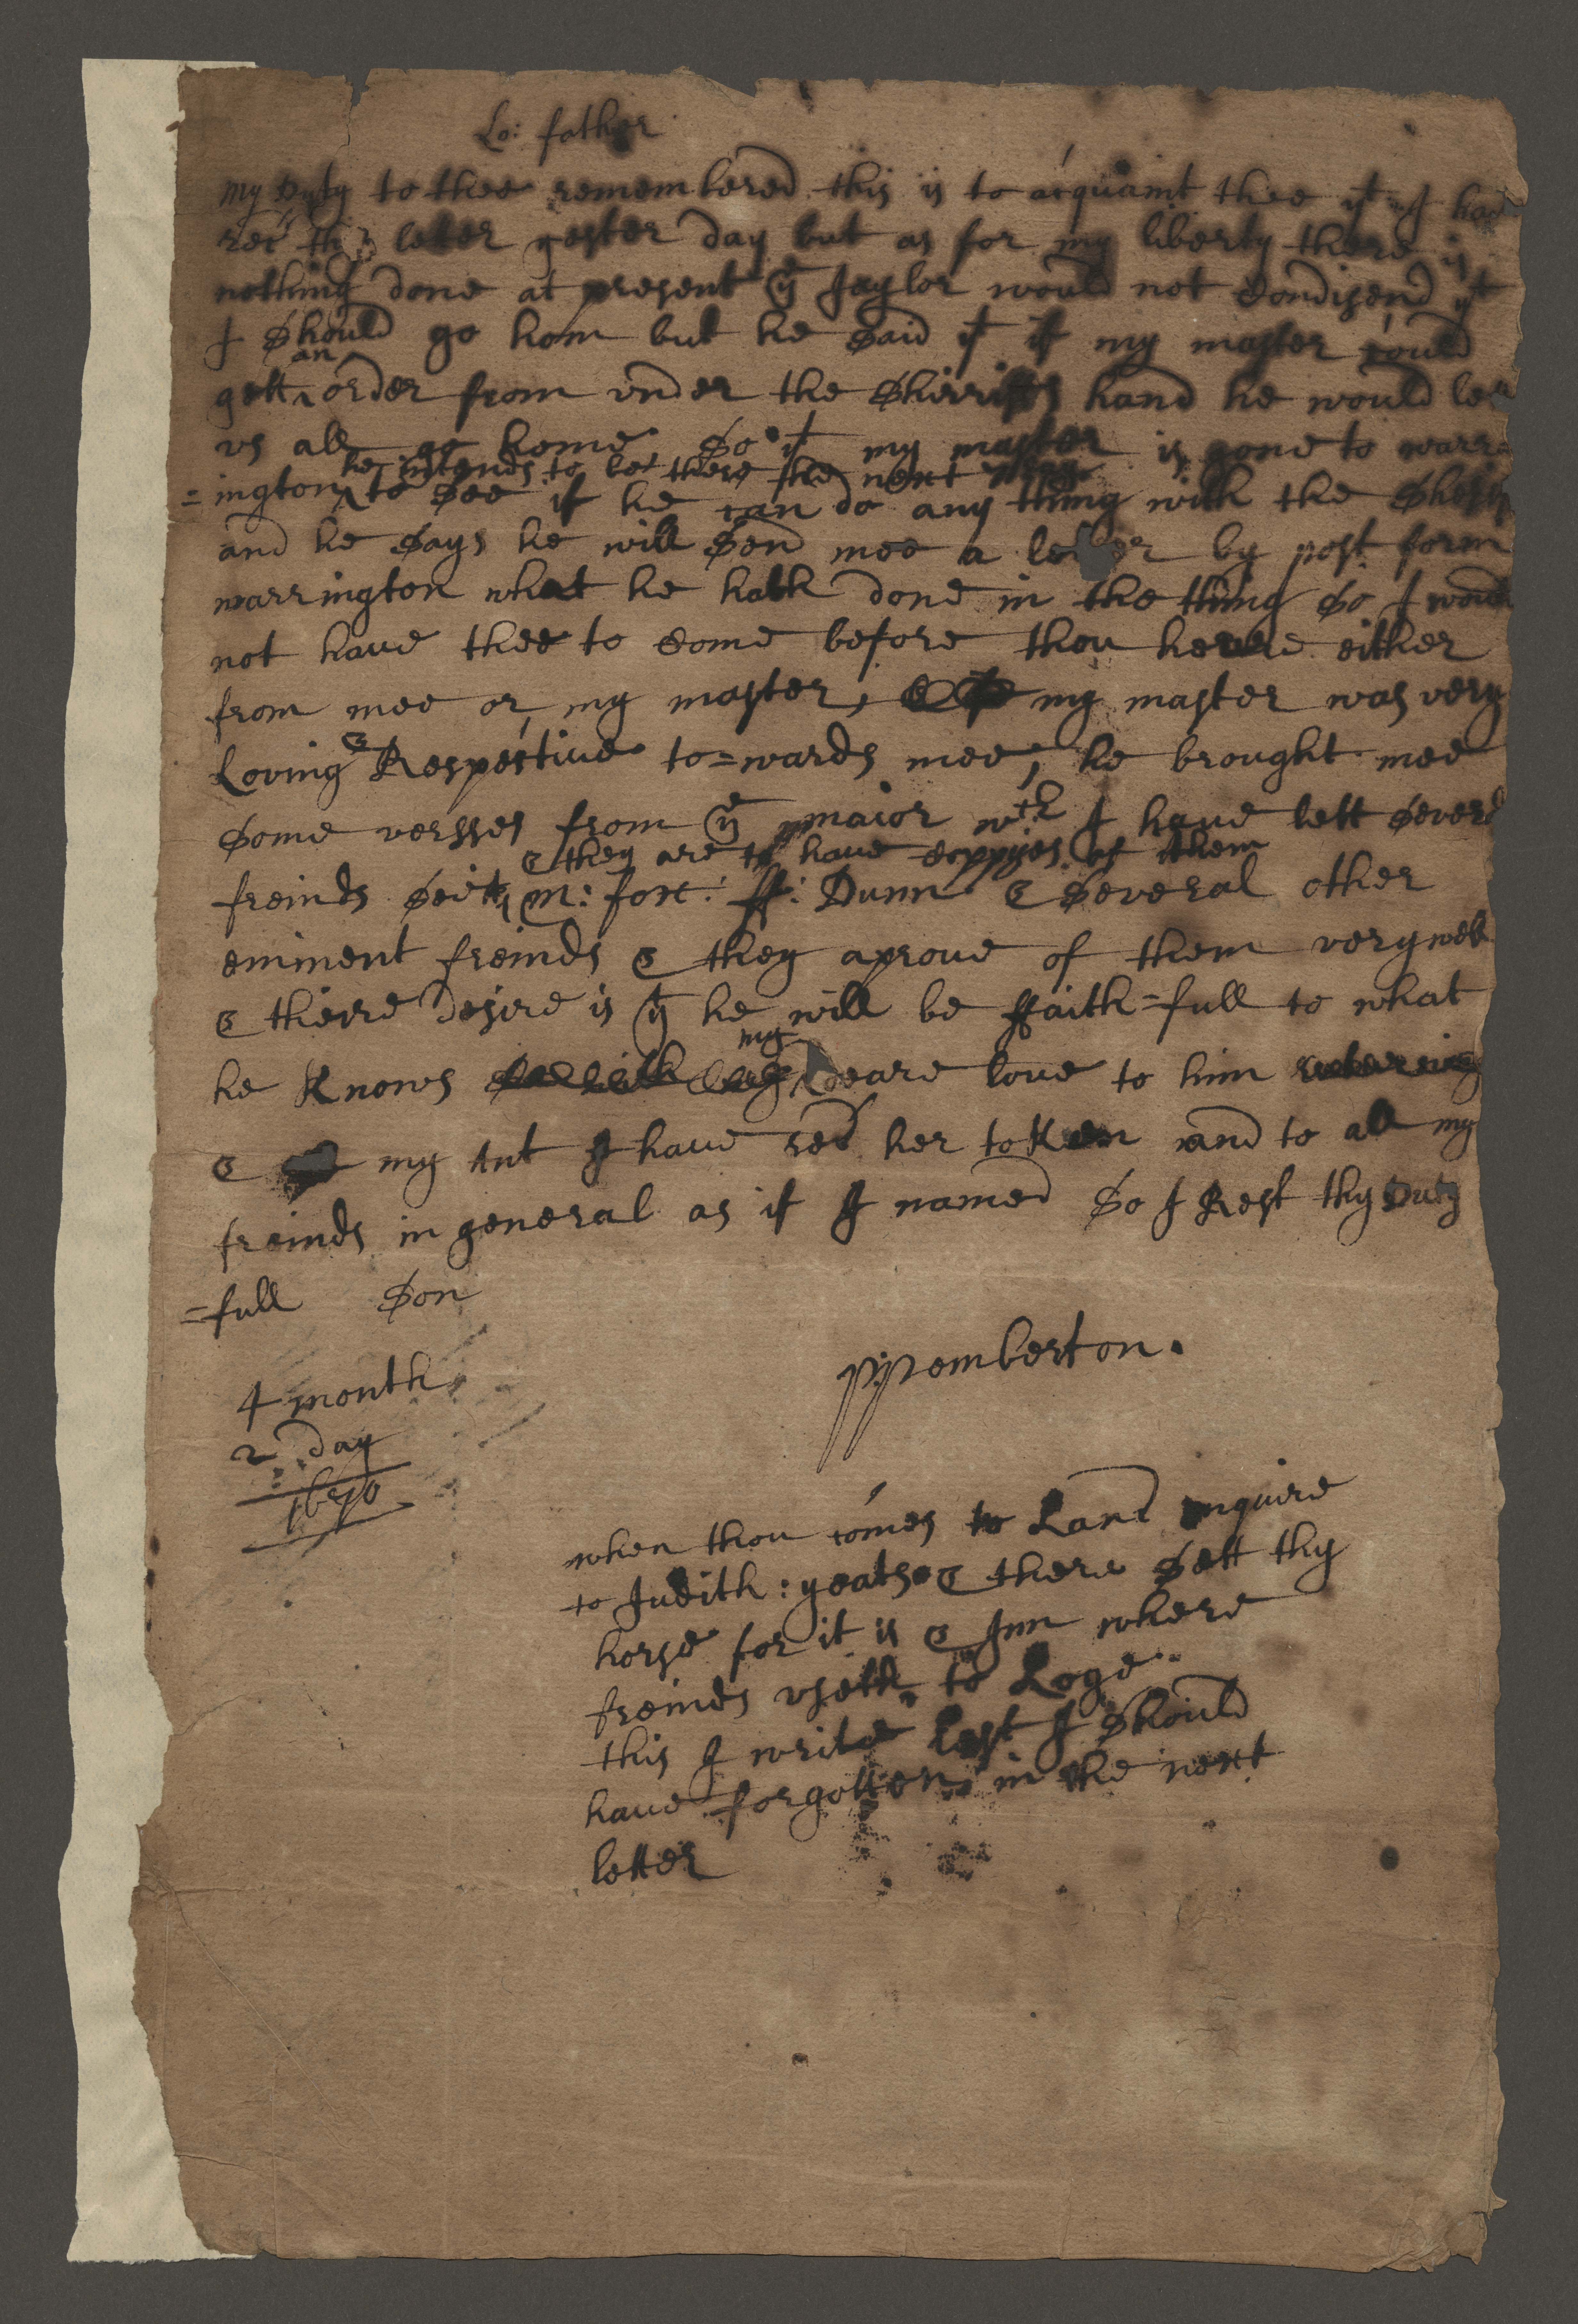 Lo: father
My Duty to thee remembered this is to acquaint thee yt I had
rec thy letter yester day but as for my liberty there is
nothing done at present ye Jaylor would not Condisend yt
I should go hom but he said yt if my master could
gett an order from under the shirriffs hand he would lett
us all go home so yt my master is gone to warr
=ington he intends to bee there the next to see if he can do any thing with the
and he says he will send mee a letter by post form
warrington what he hath done in the thing so I would
not have thee to Come before thou heere either
from mee or my master, my master was very
Loving & Respective to=wards mee, he brought mee
some versses from ye maior wch I have lett severl
& they are to have Coppyes of them
freinds see it, M: fox: ff: Dunn & several other
eminent freinds & they aprove of them very well
& theire desire is yt he will be ffaith=full to what
he Knows my deare love to him
& my Ant I have red her toKen and to all my
freinds in general as if I named so I Rest thy Duty
=full son
PPemberton.
4 month
2 day
1670
when thou comes to Lanc inquire
to Judith: yeats & there sett thy
horse for it is & Inn where
freinds useth to Loge
this I write lest I should
have forgotten in the next
letter